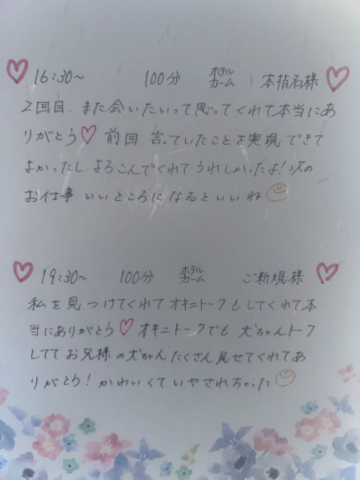 16:30~ 100分 ホテル カーム 本指名様
2回目、また会いたいって思ってくれて本当にあ
りがとう♡ 前回 言っていたことを実現 できて
よかったし、よろこんでくれて うれしかったよ！次の
お仕事 いいところになるといいね
19:30~ 100分 ホテル カーム ご新規様
私を見つけてくれて オキニトークもしてくれて本
当にありがとう♡ オキニトークでも 犬ちゃんトーク
しててお兄様の犬ちゃんたくさん見せてくれてあ
りがとう！かわいくていやされちゃった